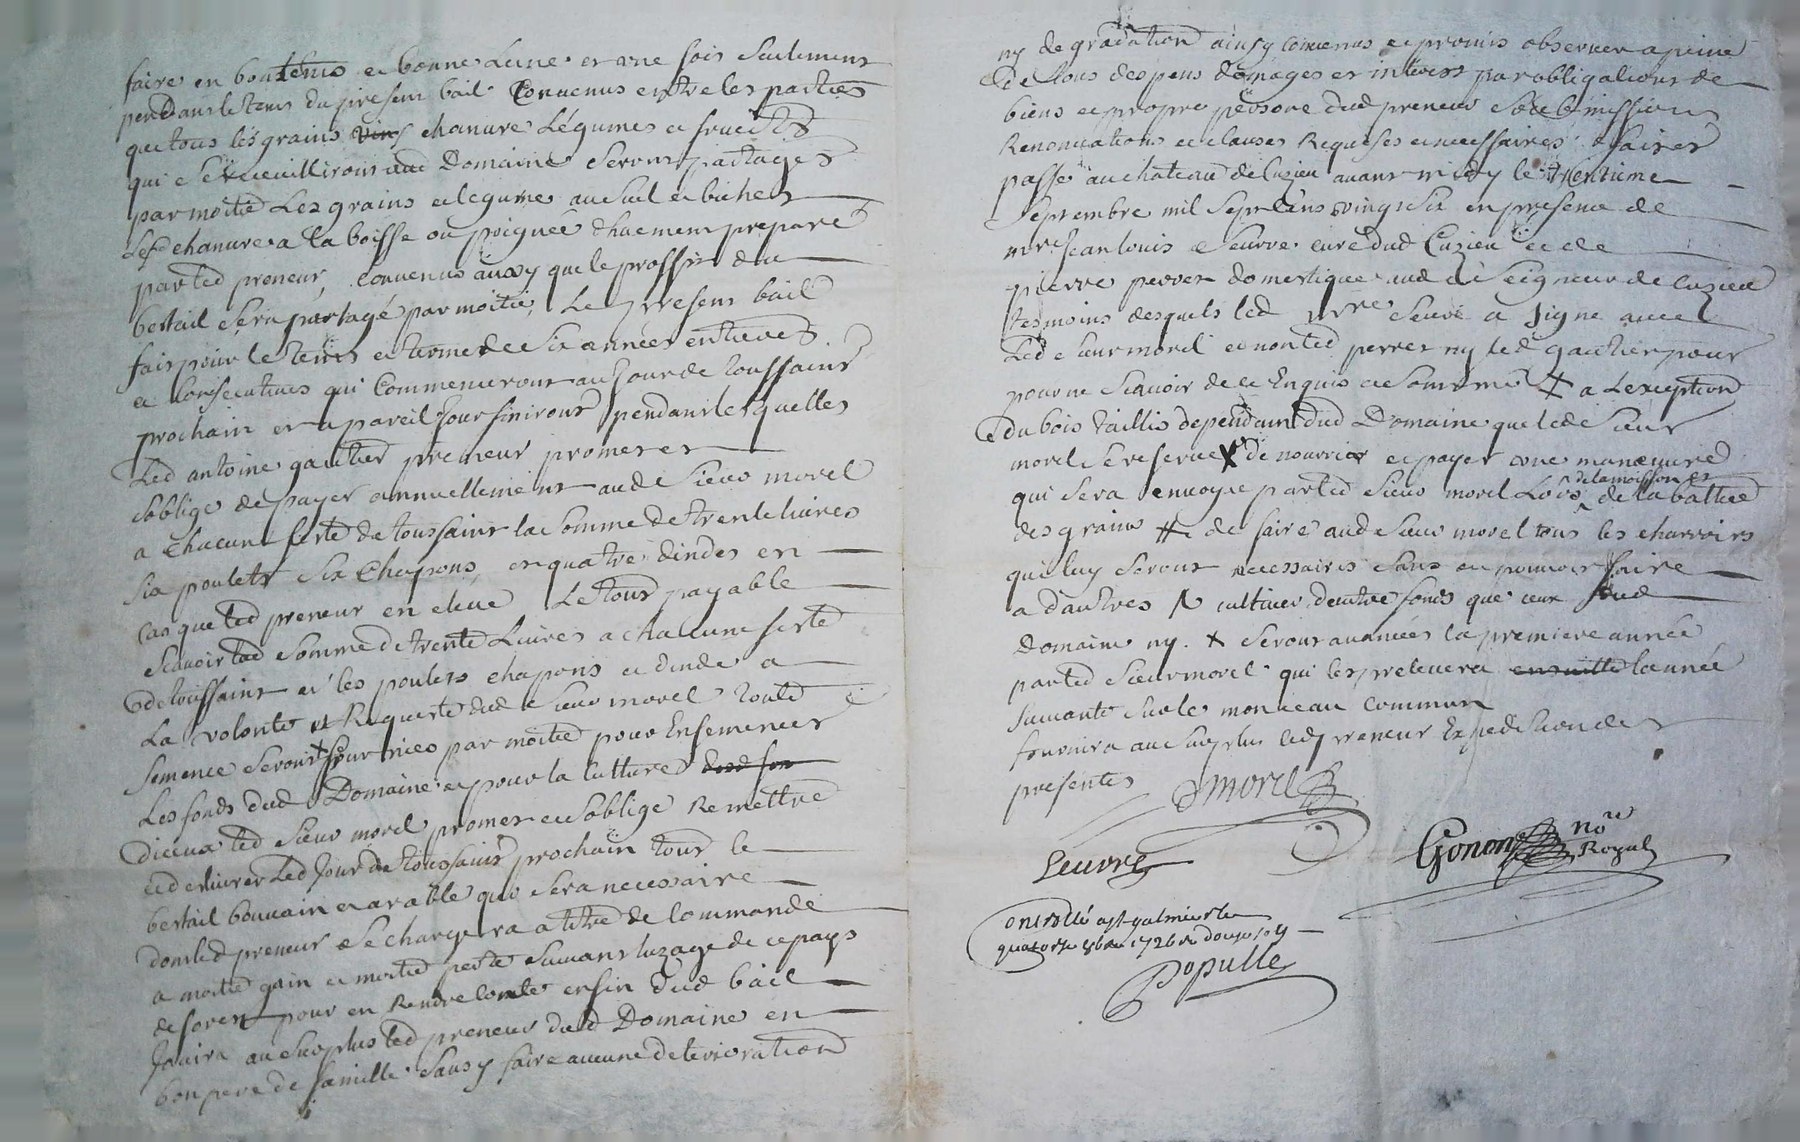 faire en bontems et bonne Lune et une fois seulement
pendant le tems du present bail Convenus entre les parties
que tous les grains vins chanvre Légumes et fruicts
qui se receuilliront aud Domaine seront partagés
par moitié Les grains et legumes au sac et bichet
Led chanvre a la boisse ou poignée duement preparé
par led preneur, Convenus aussy que le proffit du
bestail sera partagé par moitié, Le present bail
fait pour le tems et terme de six années entieres
et Consecutives qui Commenceront au Jour de toussaint
prochain et a pareil Jour finiront pendant lesquelles
Led antoine gautier preneur promet et
soblige de payer annuellement aud sieur morel
a chacune feste de toussaint la somme de trente livres
six poulets six chapons, et quatre dindes en
cas que led preneur en eleve Le tout payable
scavoir lad somme de trente Livres a chacune feste
de toussaint et les poulets chapons et dinde a
La volonté et Requeste dud sieur morel toute
semence seront + fournies par moitié pour Ensemencer
Les fonds dud Domaine et pour la Culture dud fon
diceux led sieur morel promet et soblige Remettre
et delivrer Led Jour de toussaint prochain tout le
bestail bouvain et arable qui sera necessaire
dont led preneur se chargera a titre de Commande
a moitié gain et moitié perte suivant luzage de ce pays
de forest pour en Rendre Comte enfin dud bail
Jouira au surplus led preneur dud Domaine en
bon pere de famille sans y faire aucune deterioration
ny degradation ainsy Convenus et promis observer a peine
de tous despens domages et interest par obligations de
biens et propre persone dud preneur soubmission
Renonciations et clauses Requises et necessaires faict et
passé au chateau de Cuzieu avant midy le trentieme
septembre mil sept cens vingt six en presence de
mre Jean louis seurre curé dud Cuzieu et de
pierre perret domestique aud seigneur de Cuzieu
tesmoins desquels led mre seurre a signe avec
Led sieur morel et non led perret ny led gautier pour
pour ne scavoir de ce Enquis et sommé + a Lexception
du bois taillis dependant dud Domaine que led sieur
morel se reserve X de nourrir et payer une manoeuvre
qui sera envoyé par led sieur morel Lors de la moisson et de la batture
des grains # de faire aud sieur morel tous les charrois
qui luy seront necessaires sans en pouvoir faire
a dautres ny cultiver dautre fonds que ceux dud
Domaine ny. + seront avancées la premiere année
par led sieur morel qui les prelevera ensuitte lannée
suivante sur le monceau Commun
fournira au surplus led preneur Expedition des
presentes
morel
seurre
Gonon nore Royal
Controllé a st galmier le
quatorze 8bre 1726 Rx douze s
Populle